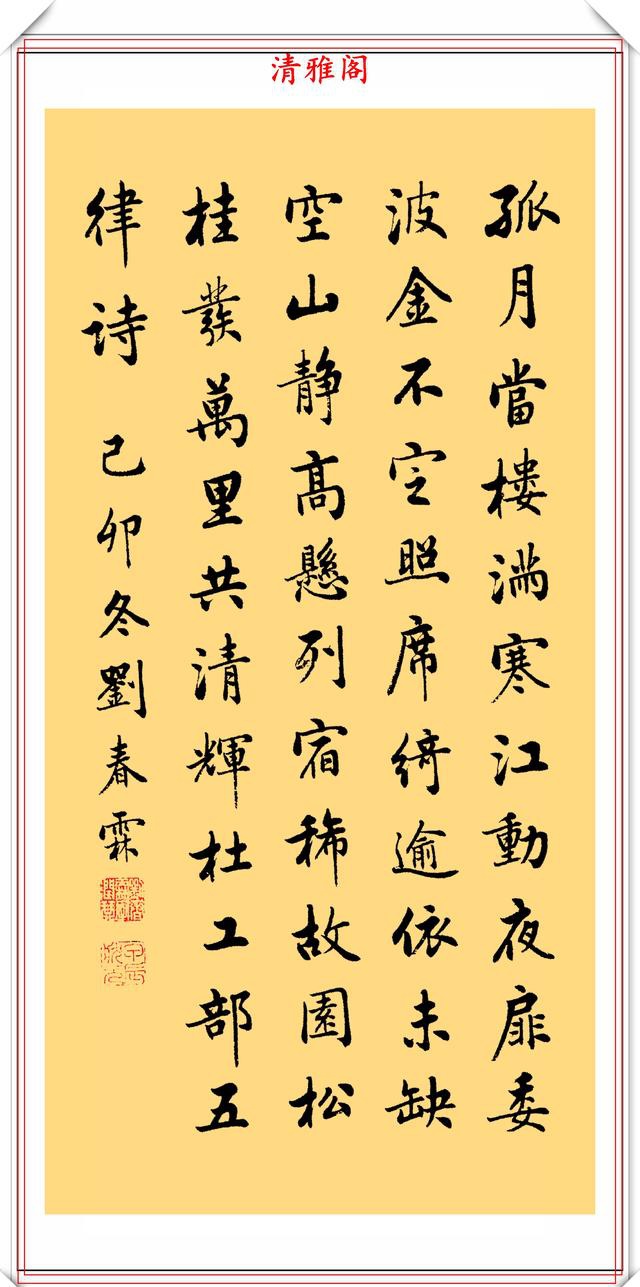 清雅阁
孤月當樓滿寒江動夜扉委
波金不定照席綺逾依未缺
空山靜高懸列宿稀故園松
桂發萬里共清輝杜工部五
律詩 己卯冬劉春霖